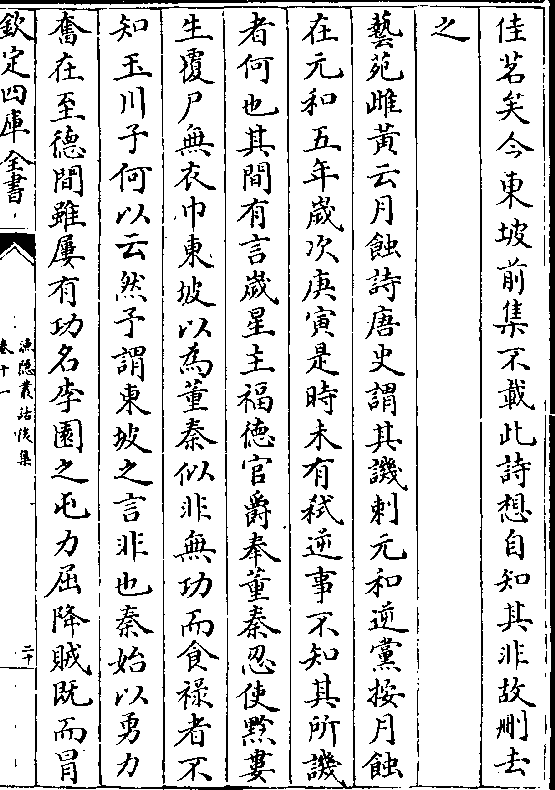 佳茗矣今東坡前集不載此詩想自知其非故刪去
之
藝苑雌黄云月蝕詩唐史謂其譏刺元和逆黨按月蝕
在元和五年嵗次庚寅是時未有弑逆事不知其所譏
者何也其間有言嵗星主福徳官爵奉董秦忍使黔婁
生覆尸無衣巾東坡以為董秦似非無功而食禄者不
知玉川子何以云然予謂東坡之言非也秦始以勇力
奮在至徳間雖屢有功名李園之屯力屈降賊既而冐
欽定四庫全書
漁隠叢話後集
卷十一
二十